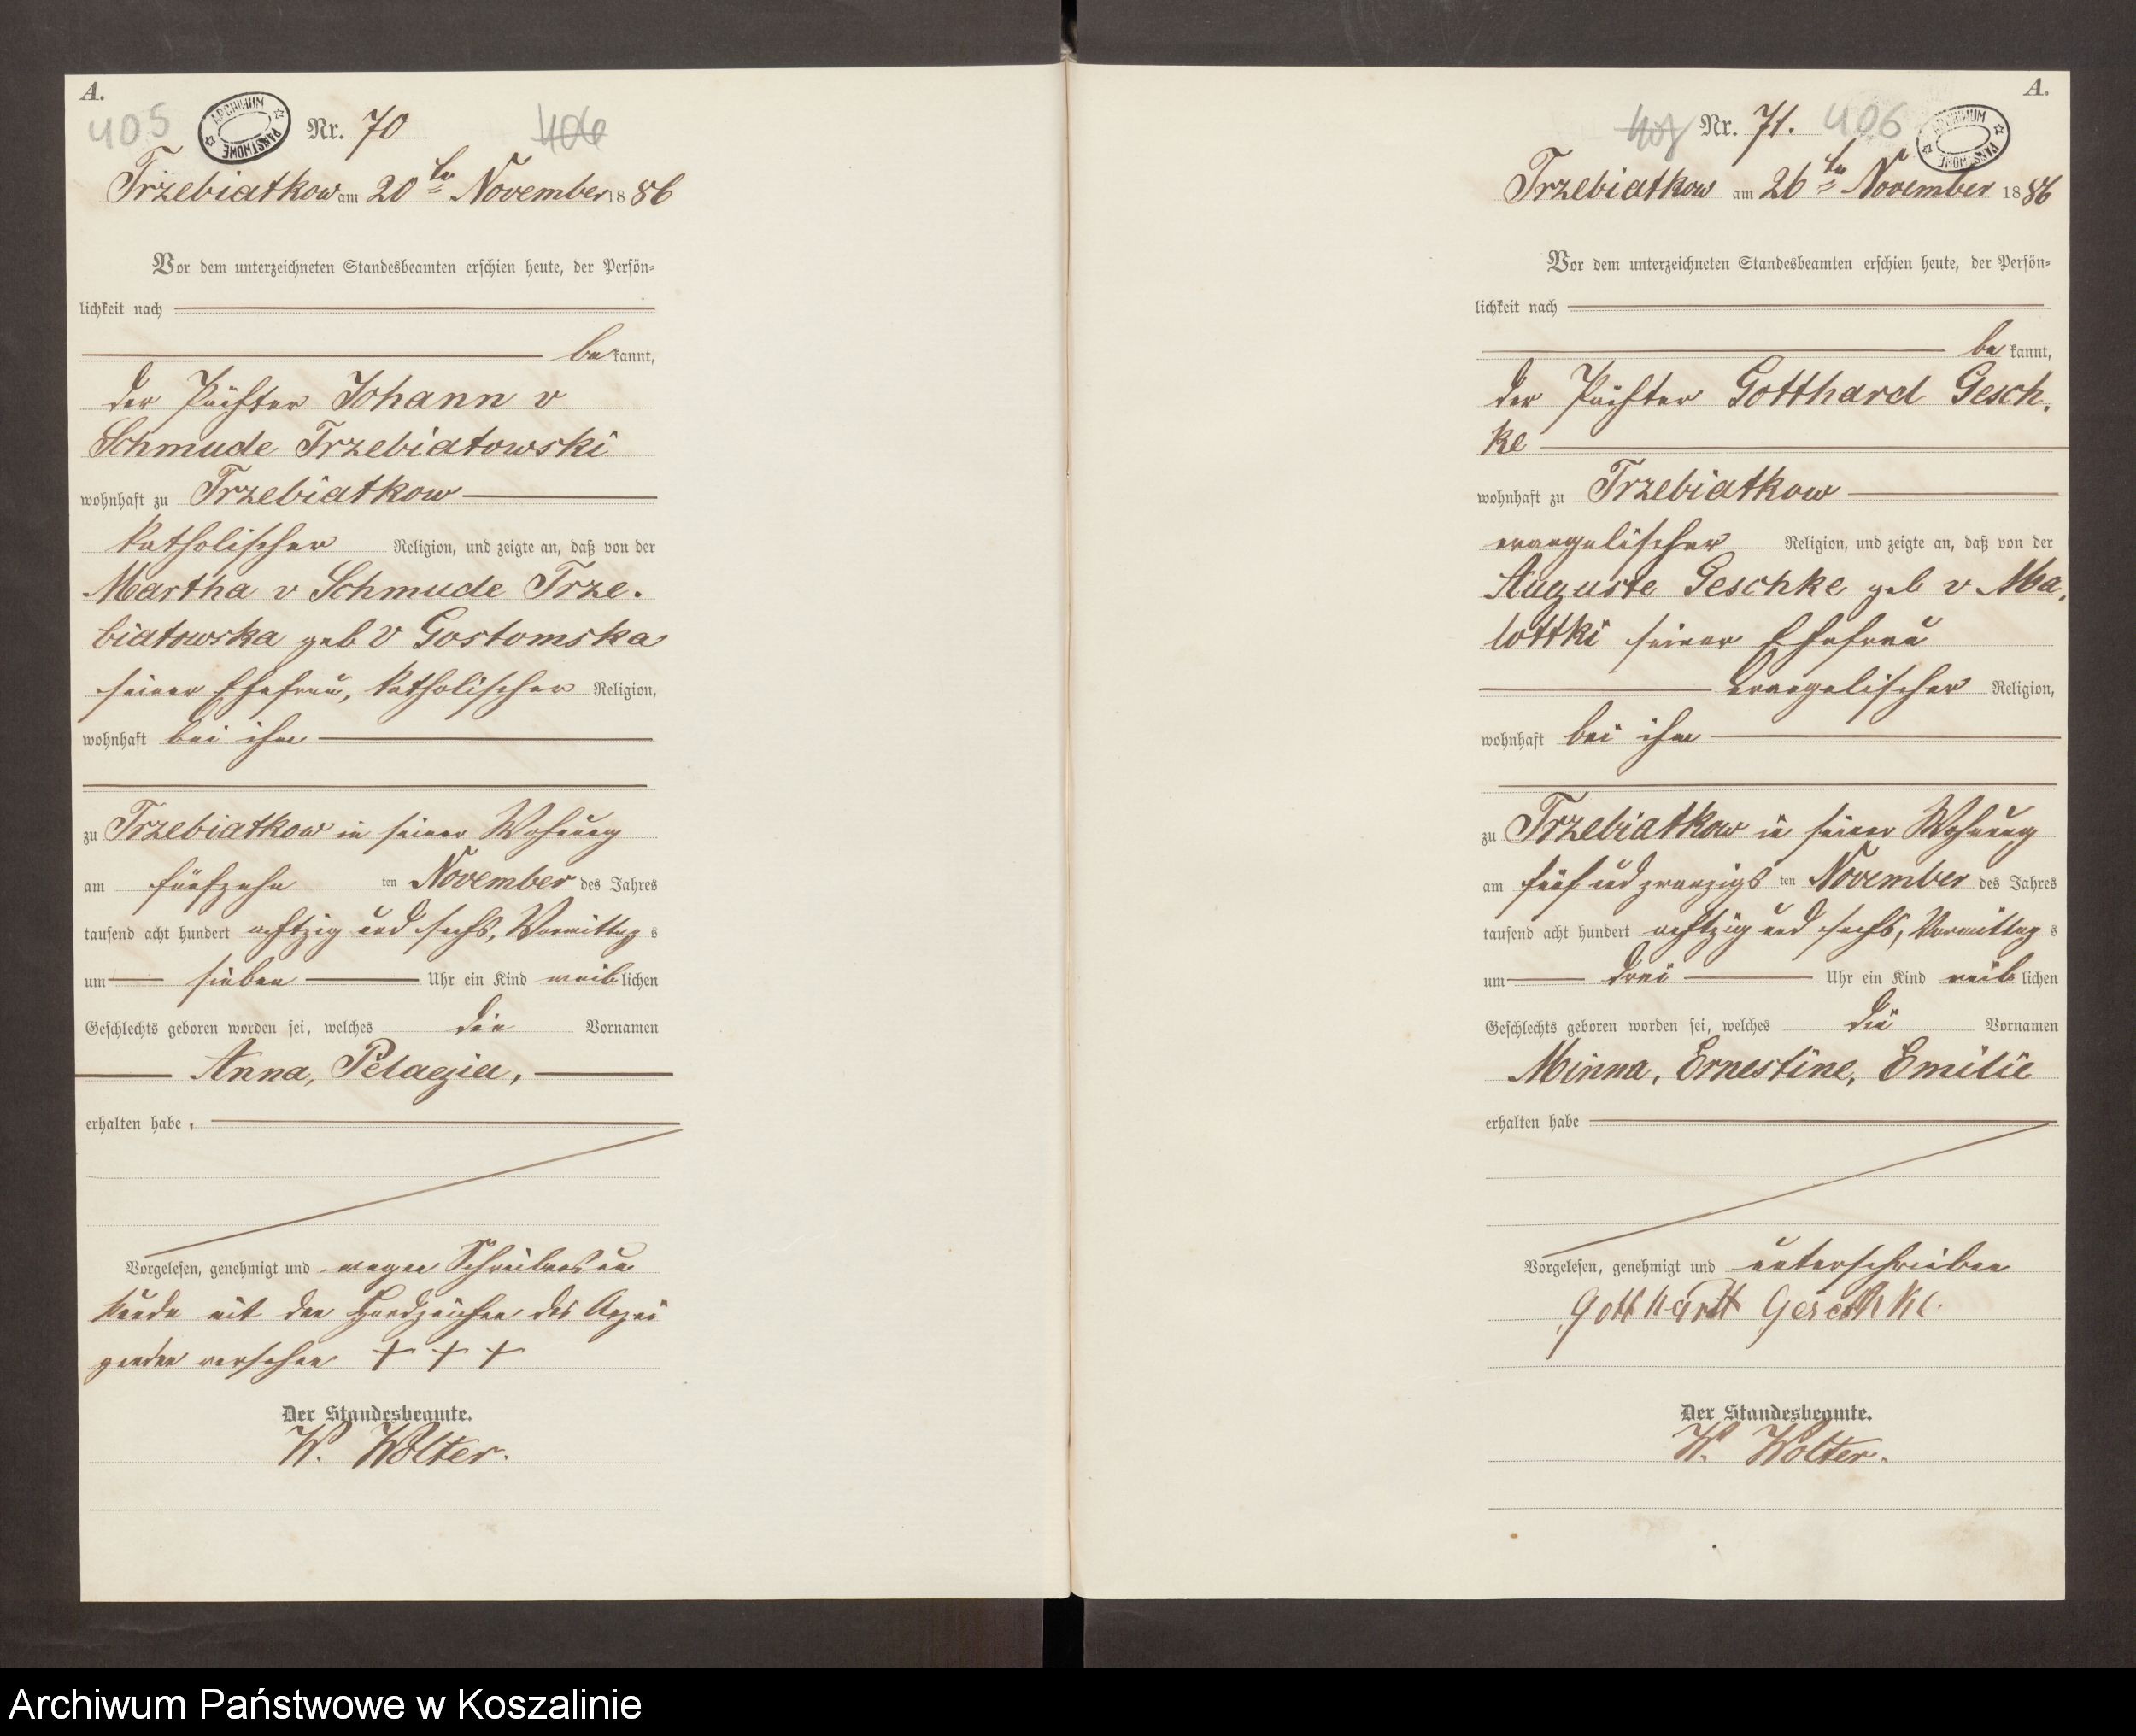 A.
405
ARCHIWUM PAŃSTWOWE
Nr. 70
406
Trzebiatkow am 20ten November 1886
Vor dem unterzeichneten Standesbeamten erschien heute, der Persön=
lichkeit nach
be kannt,
der Pächter Johann v
Schmude Trzebiatowski
wohnhaft zu Trzebiatkow
katholischer Religion, und zeigte an, daß von der
Martha v Schmude Trze.
biatowska geb v Gostomska
seiner Ehefrau, katholischer Religion,
wohnhaft bei ihm
zu Trzebiatkow in seiner Wohnung
am fünfzehn ten November des Jahres
tausend acht hundert achtzig und sechs, Vormittag s
um sieben Uhr ein Kind weib lichen
Geschlechts geboren worden sei, welches die Vornamen
Anna, Pelagia,
erhalten habe,
Vorgelesen, genehmigt und wegen Schreibensun
kunde mit den Handzeichen des Anzei
genden versehen + + +
Der Standesbeamte.
W. Wolter.
A.
407
Nr. 71.
406
ARCHIWUM PAŃSTWOWE
Trzebiatkow am 26ten November 1886
Vor dem unterzeichneten Standesbeamten erschien heute, der Persön=
lichkeit nach
be kannt,
der Pächter Gotthard Gesch.
ke
wohnhaft zu Trzebiatkow
evangelischer Religion, und zeigte an, daß von der
Auguste Geschke geb v Ma.
lottki seiner Ehefrau
evangelischer Religion,
wohnhaft bei ihm
zu Trzebiatkow in seiner Wohnung
am fünf und zwanzigs ten November des Jahres
tausend acht hundert achtzig und sechs, Vormittag s
um drei Uhr ein Kind weib lichen
Geschlechts geboren worden sei, welches die Vornamen
Minna, Ernestine, Emilie
erhalten habe
Vorgelesen, genehmigt und unterschrieben
Gotthardt Geschke.
Der Standesbeamte.
W. Wolter.
Archiwum Państwowe w Koszalinie